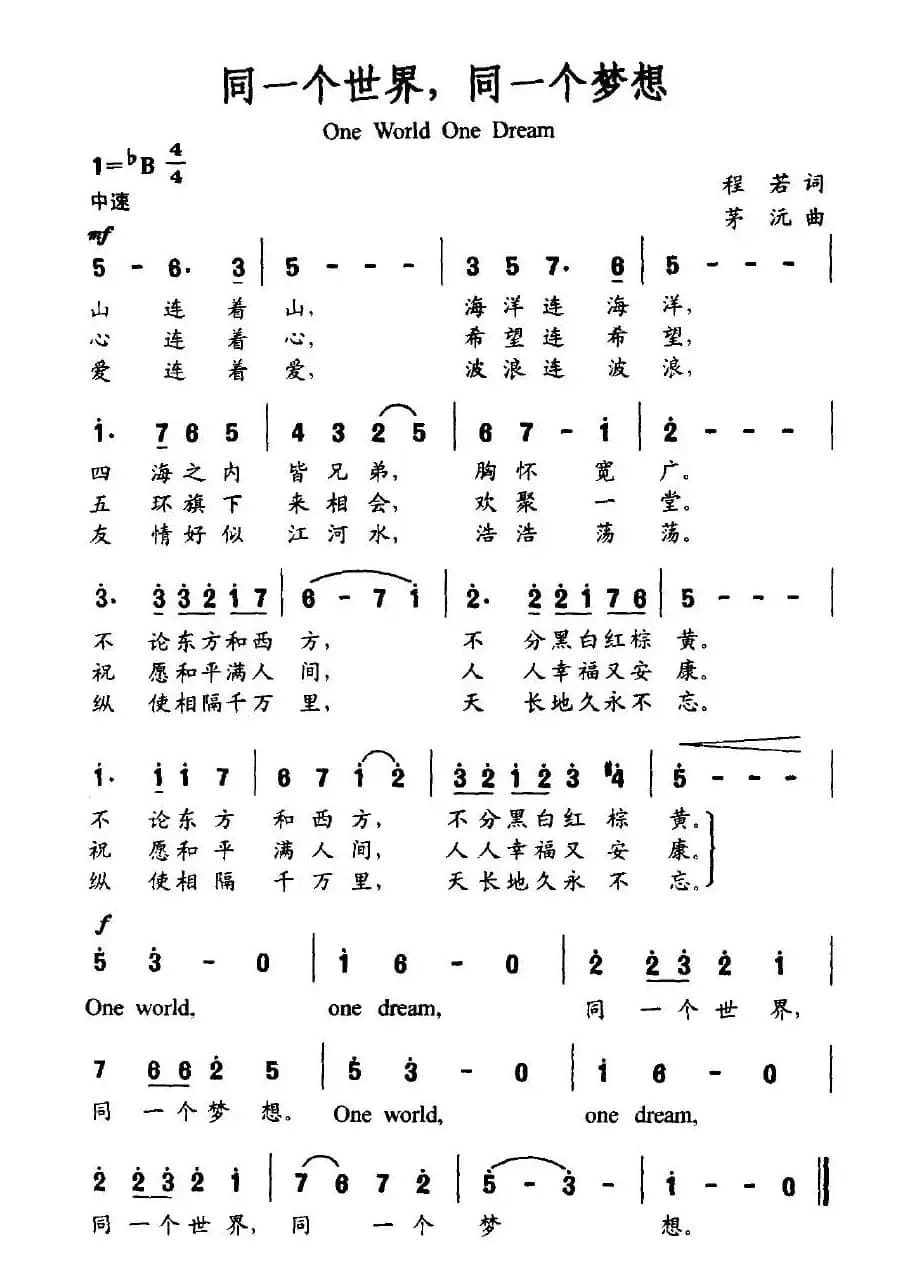 同一个世界，同一个梦想
One World One Dream
1=♭B 4/4
程 若 词
中速
茅 沅 曲
mf
5 - 6· 3 | 5 - - - | 3 5 7· 6 | 5 - - - |
山 连 着 山， 海 洋 连 海 洋，
心 连 着 心， 希 望 连 希 望，
爱 连 着 爱， 波 浪 连 波 浪，
1̇· 7 6 5 | 4 3 2 5 | 6 7 - 1̇ | 2̇ - - - |
四 海 之 内 皆 兄 弟， 胸 怀 宽 广。
五 环 旗 下 来 相 会， 欢 聚 一 堂。
友 情 好 似 江 河 水， 浩 浩 荡 荡。
3̇· 3̇ 3̇ 2̇ 1̇ 7 | 6 - 7 1̇ | 2̇· 2̇ 2̇ 1̇ 7 6 | 5 - - - |
不 论东方和西 方， 不 分黑白红棕 黄。
祝 愿和平满人 间， 人 人幸福又安 康。
纵 使相隔千万 里， 天 长地久永不 忘。
1̇· 1̇ 1̇ 7 | 6 7 1̇ 2̇ | 3̇ 2̇ 1̇ 2̇ 3̇ #4̇ | 5̇ - - - |
不 论东 方 和西方， 不分黑白红 棕 黄。
祝 愿和平 满人间， 人人幸福又 安 康。
纵 使相隔 千万里， 天长地久永 不 忘。
f
5̇ 3̇ - 0 | 1̇ 6 - 0 | 2̇ 2̇ 3̇ 2̇ 1̇ |
One world, one dream, 同 一 个 世 界，
7 6 6 2̇ 5 | 5̇ 3̇ - 0 | 1̇ 6 - 0 |
同 一个梦 想。 One world, one dream,
2̇ 2̇ 3̇ 2̇ 1̇ | 7 6 7 2̇ | 5̇ - 3̇ - | 1̇ - - 0 ‖
同 一个世 界， 同 一 个 梦 想。